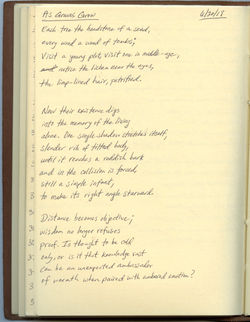 As Grows Grow 6/20/15
Each tree the handstone of a seed,
every wind a wand of
Visit a young plot, visit one in middle-age,
notice the lichen near the eyes,
the limp-lined hair, petrified.
Now their existence digs
into the memory of the living
alone. One single shadow stretches itself,
slender rib of tilted body,
until it reaches a reddish bark
and in the collision is forced,
still a simple infant,
to make its right angle starward.
Distance becomes objective;
wisdom no longer refuses
proof. Is thought to be cold
only, or is it that knowledge
can be an unexpected ambassador
of warmth when paired with emotion?